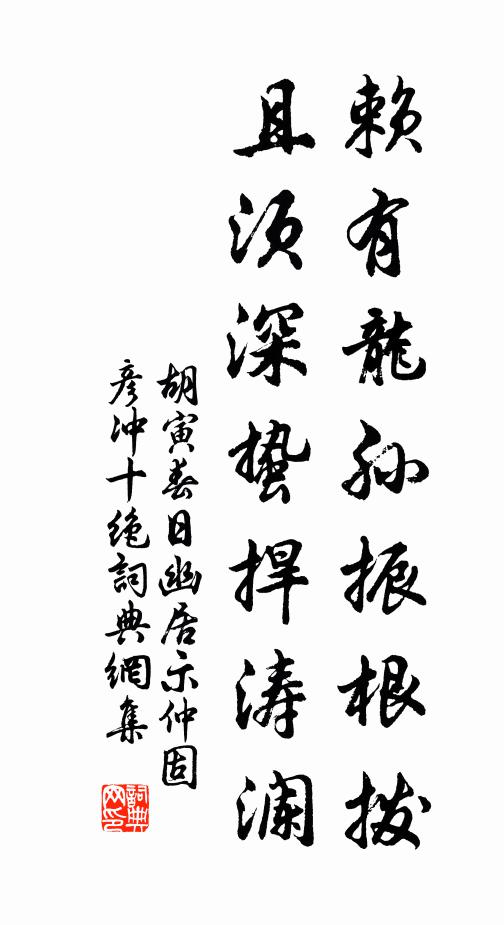 赖有龍孙振根拨
且须深蛰捍涛澜
胡寅春日幽居示仲固
彦冲十绝詞典網集
詞典网印